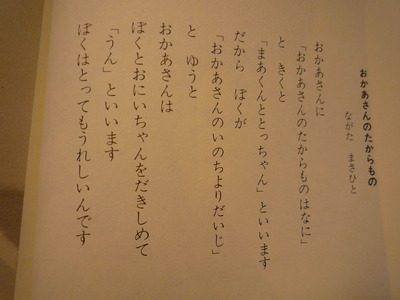 おかあさんのたからもの
ながた まさひと
おかあさんに
「おかあさんのたからものはなに」
と きくと
「まあくんととっちゃん」といいます
だから ぼくが
「おかあさんのいのちよりだいじ」
と ゆうと
おかあさんは
ぼくとおにいちゃんをだきしめて
「うん」といいます
ぼくはとってもうれしいんです